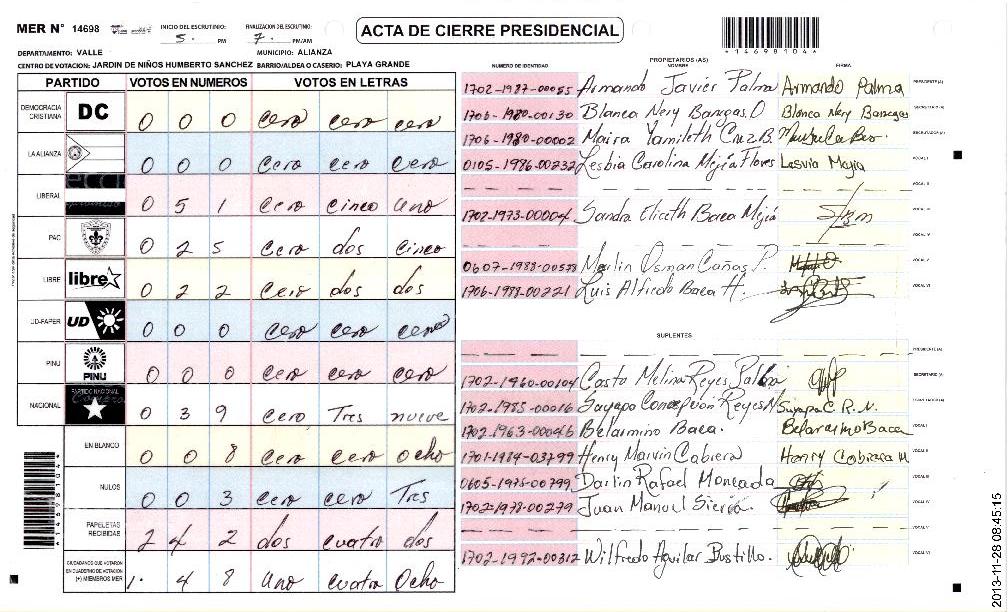 MER N° 14698
INICIO DEL ESCRUTINIO: 5. PM
FINALIZACION DEL ESCRUTINIO: 7. PM/AM
ACTA DE CIERRE PRESIDENCIAL
*14698104*
DEPARTAMENTO: VALLE MUNICIPIO: ALIANZA
CENTRO DE VOTACION: JARDIN DE NIÑOS HUMBERTO SANCHEZ BARRIO/ALDEA O CASERIO: PLAYA GRANDE
PARTIDO VOTOS EN NUMEROS VOTOS EN LETRAS
DEMOCRACIA CRISTIANA DC 0 0 0 cero cero cero
LA ALIANZA 0 0 0 cero cero cero
LIBERAL 0 5 1 cero cinco uno
PAC 0 2 5 cero dos cinco
LIBRE libre 0 2 2 cero dos dos
UD-FAPER UD 0 0 0 cero cero cero
PINU PINU 0 0 0 cero cero cero
NACIONAL PARTIDO NACIONAL 0 3 9 cero Tres nueve
EN BLANCO 0 0 8 cero cero ocho
NULOS 0 0 3 cero cero Tres
PAPELETAS RECIBIDAS 2 4 2 dos cuatro dos
CIUDADANOS QUE VOTARON EN CUADERNO DE VOTACION (+) MIEMBROS MER 1. 4 8 uno cuatro Ocho
*14698104*
PROPIETARIOS (AS)
NUMERO DE IDENTIDAD NOMBRE FIRMA
1702-1987-00055 Armando Javier Palma Armando Palma PRESIDENTE (A)
1706-1980-00130 Blanca Nery Banegas O Blanca Nery Banegas SECRETARIO (A)
1706-1980-00002 Maira Yamileth Cruz B. ESCRUTADOR (A)
0105-1986-00232 Lesbia Carolina Mejía Flores Lesvia Mejia VOCAL I
VOCAL II
1702-1973-00004 Sandra Elizeth Baca Mejía VOCAL III
VOCAL IV
0607-1988-00538 Marlin Osman Cañas P. VOCAL V
1706-1988-00221 Luis Alfredo Baca H. VOCAL VI
SUPLENTES
PRESIDENTE (A)
1702-1960-00104 Casto Melina Reyes SECRETARIO (A)
1702-1985-00016 Suyapa Concepción Reyes N Suyapa C. R. N. ESCRUTADOR (A)
1702-1963-00046 Belarmino Baca. Belarmino Baca VOCAL I
1701-1984-03799 Henry Marvin Cabrera Henry Cabrera M VOCAL II
0605-1975-00799 Darlin Rafael Moncada VOCAL III
1702-1978-00279 Juan Manuel Sierra. VOCAL IV
VOCAL V
1702-1992-00312 Wilfredo Aguilar Bustillo. VOCAL VI
2013-11-28 08:45:15